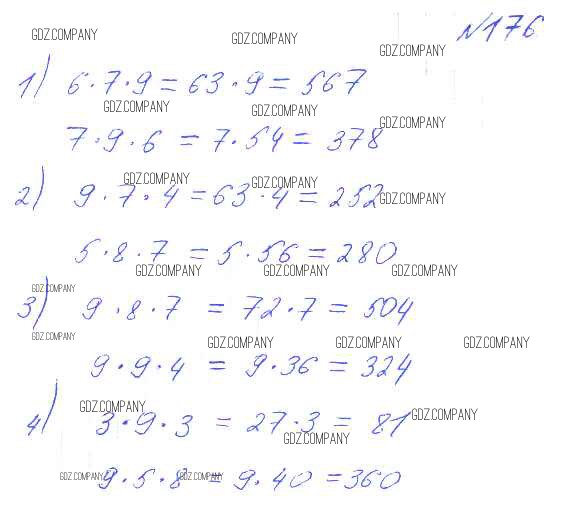 GDZ.COMPANY GDZ.COMPANY №176
GDZ.COMPANY
1) 6·7·9=63·9=567
GDZ.COMPANY GDZ.COMPANY
GDZ.COMPANY
7·9·6=7·54=378
GDZ.COMPANY GDZ.COMPANY
2) 9·7·4=63·4=252 GDZ.COMPANY
5·8·7=5·56=280
GDZ.COMPANY GDZ.COMPANY GDZ.COMPANY
GDZ.COMPANY
3) 9·8·7=72·7=504
GDZ.COMPANY GDZ.COMPANY GDZ.COMPANY GDZ.COMPANY
9·9·4=9·36=324
GDZ.COMPANY
4) 3·9·3=27·3=81 GDZ.COMPANY
GDZ.COMPANY
GDZ.COMPANY GDZ.COMPANY
9·5·8=9·40=360